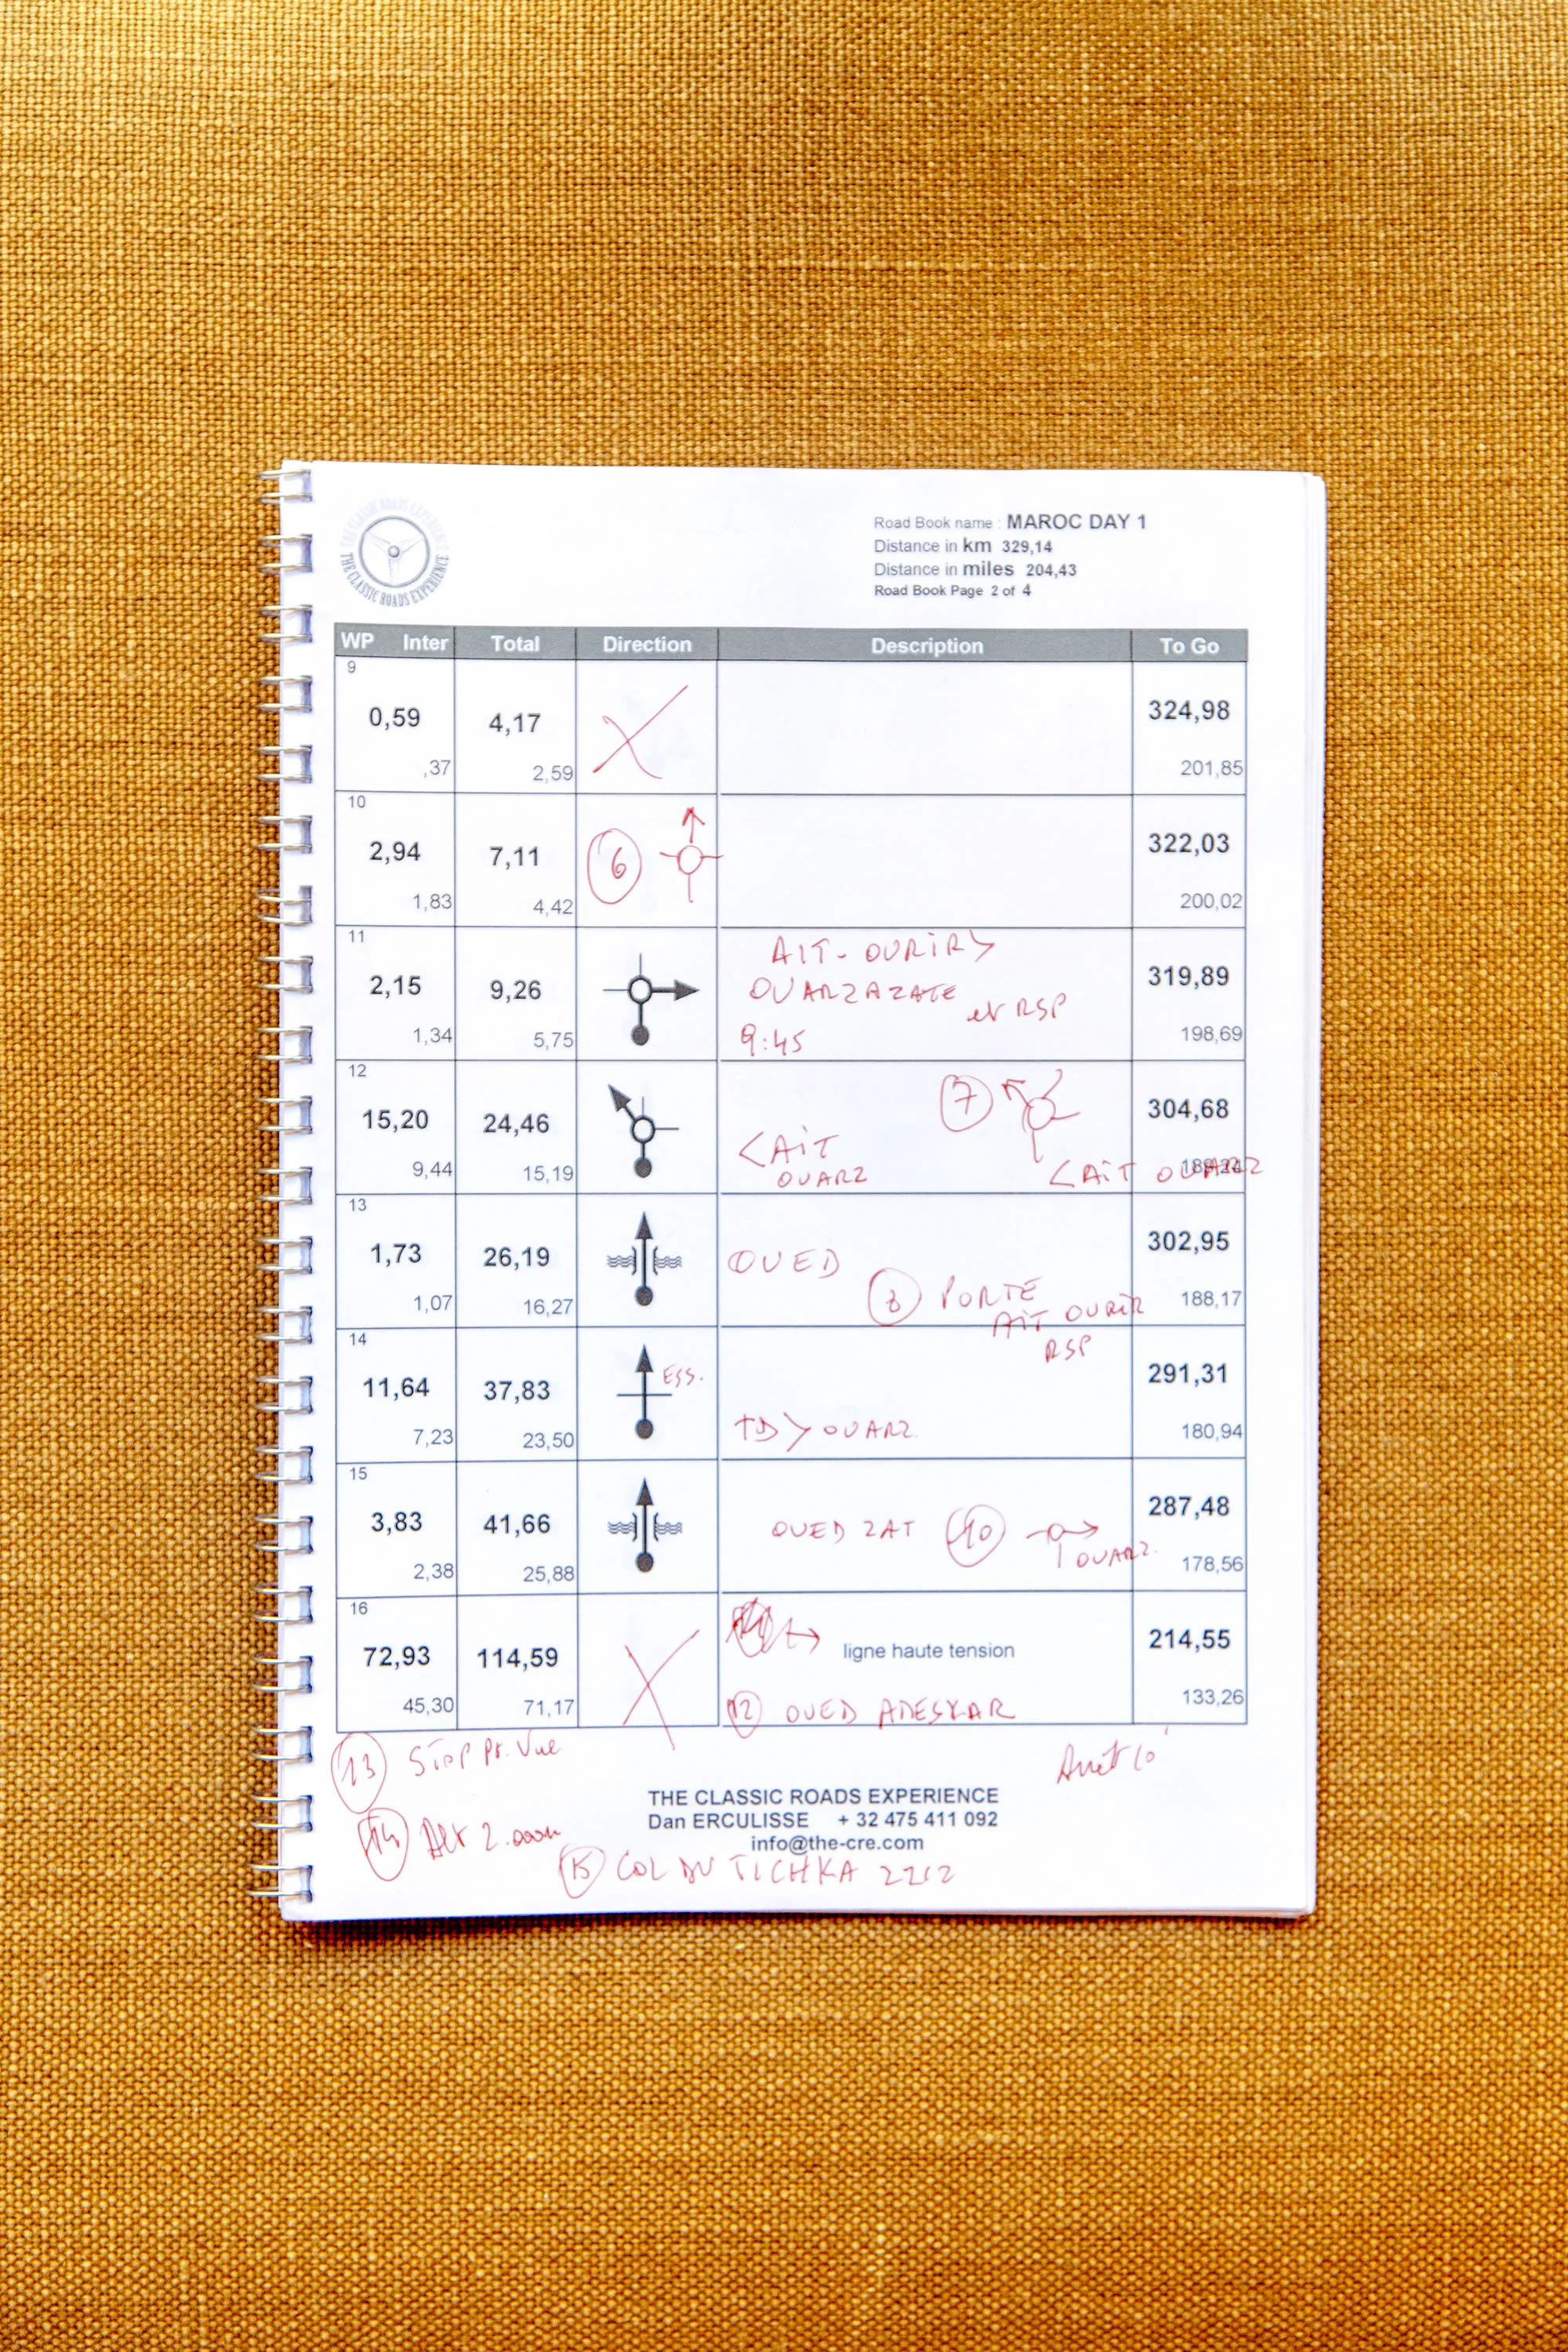 THE CLASSIC ROADS EXPERIENCE
THE CLASSIC ROADS EXPERIENCE
Road Book name : MAROC DAY 1
Distance in km 329,14
Distance in miles 204,43
Road Book Page 2 of 4
WP Inter Total Direction Description To Go
9
0,59 4,17 324,98
,37 2,59 201,85
10
2,94 7,11 6 322,03
1,83 4,42 200,02
11
AIT-OURIR
2,15 9,26 OUARZAZATE 319,89
et RSP
1,34 5,75 9:45 198,69
12
15,20 24,46 7 304,68
<AIT
9,44 15,19 OUARZ <AIT OUARZ
13
1,73 26,19 OUED 302,95
1,07 16,27 8 PORTE 188,17
AIT OURIR
RSP
14
11,64 37,83 ESS. 291,31
7,23 23,50 TD > OUARZ. 180,94
15
3,83 41,66 OUED ZAT 10 287,48
OUARZ.
2,38 25,88 178,56
16
72,93 114,59 ligne haute tension 214,55
45,30 71,17 12 OUED ADESKAR 133,26
13 STOP Pt. Vue
Arrêt 10'
THE CLASSIC ROADS EXPERIENCE
Dan ERCULISSE + 32 475 411 092
info@the-cre.com
14 Alt 2.000m
15 COL DU TICHKA 2212